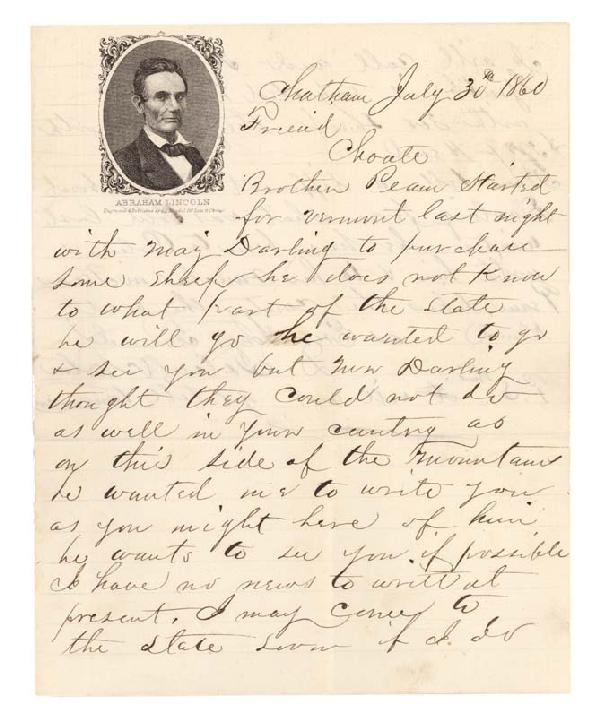 Chatham July 30th 1860
Friend
Choate
ABRAHAM LINCOLN
Brother Beam Started
for vermont last night
with Maj Darling to purchase
some sheep he does not know
to what part of the state
he will go he wanted to go
& see you but Darling
thought they could not do
as well in your country as
on this side of the mountains
he wanted me to write you
as you might here of him
he wants to see you if possible
I have no news to write at
present. I may come to
the state soon if I do